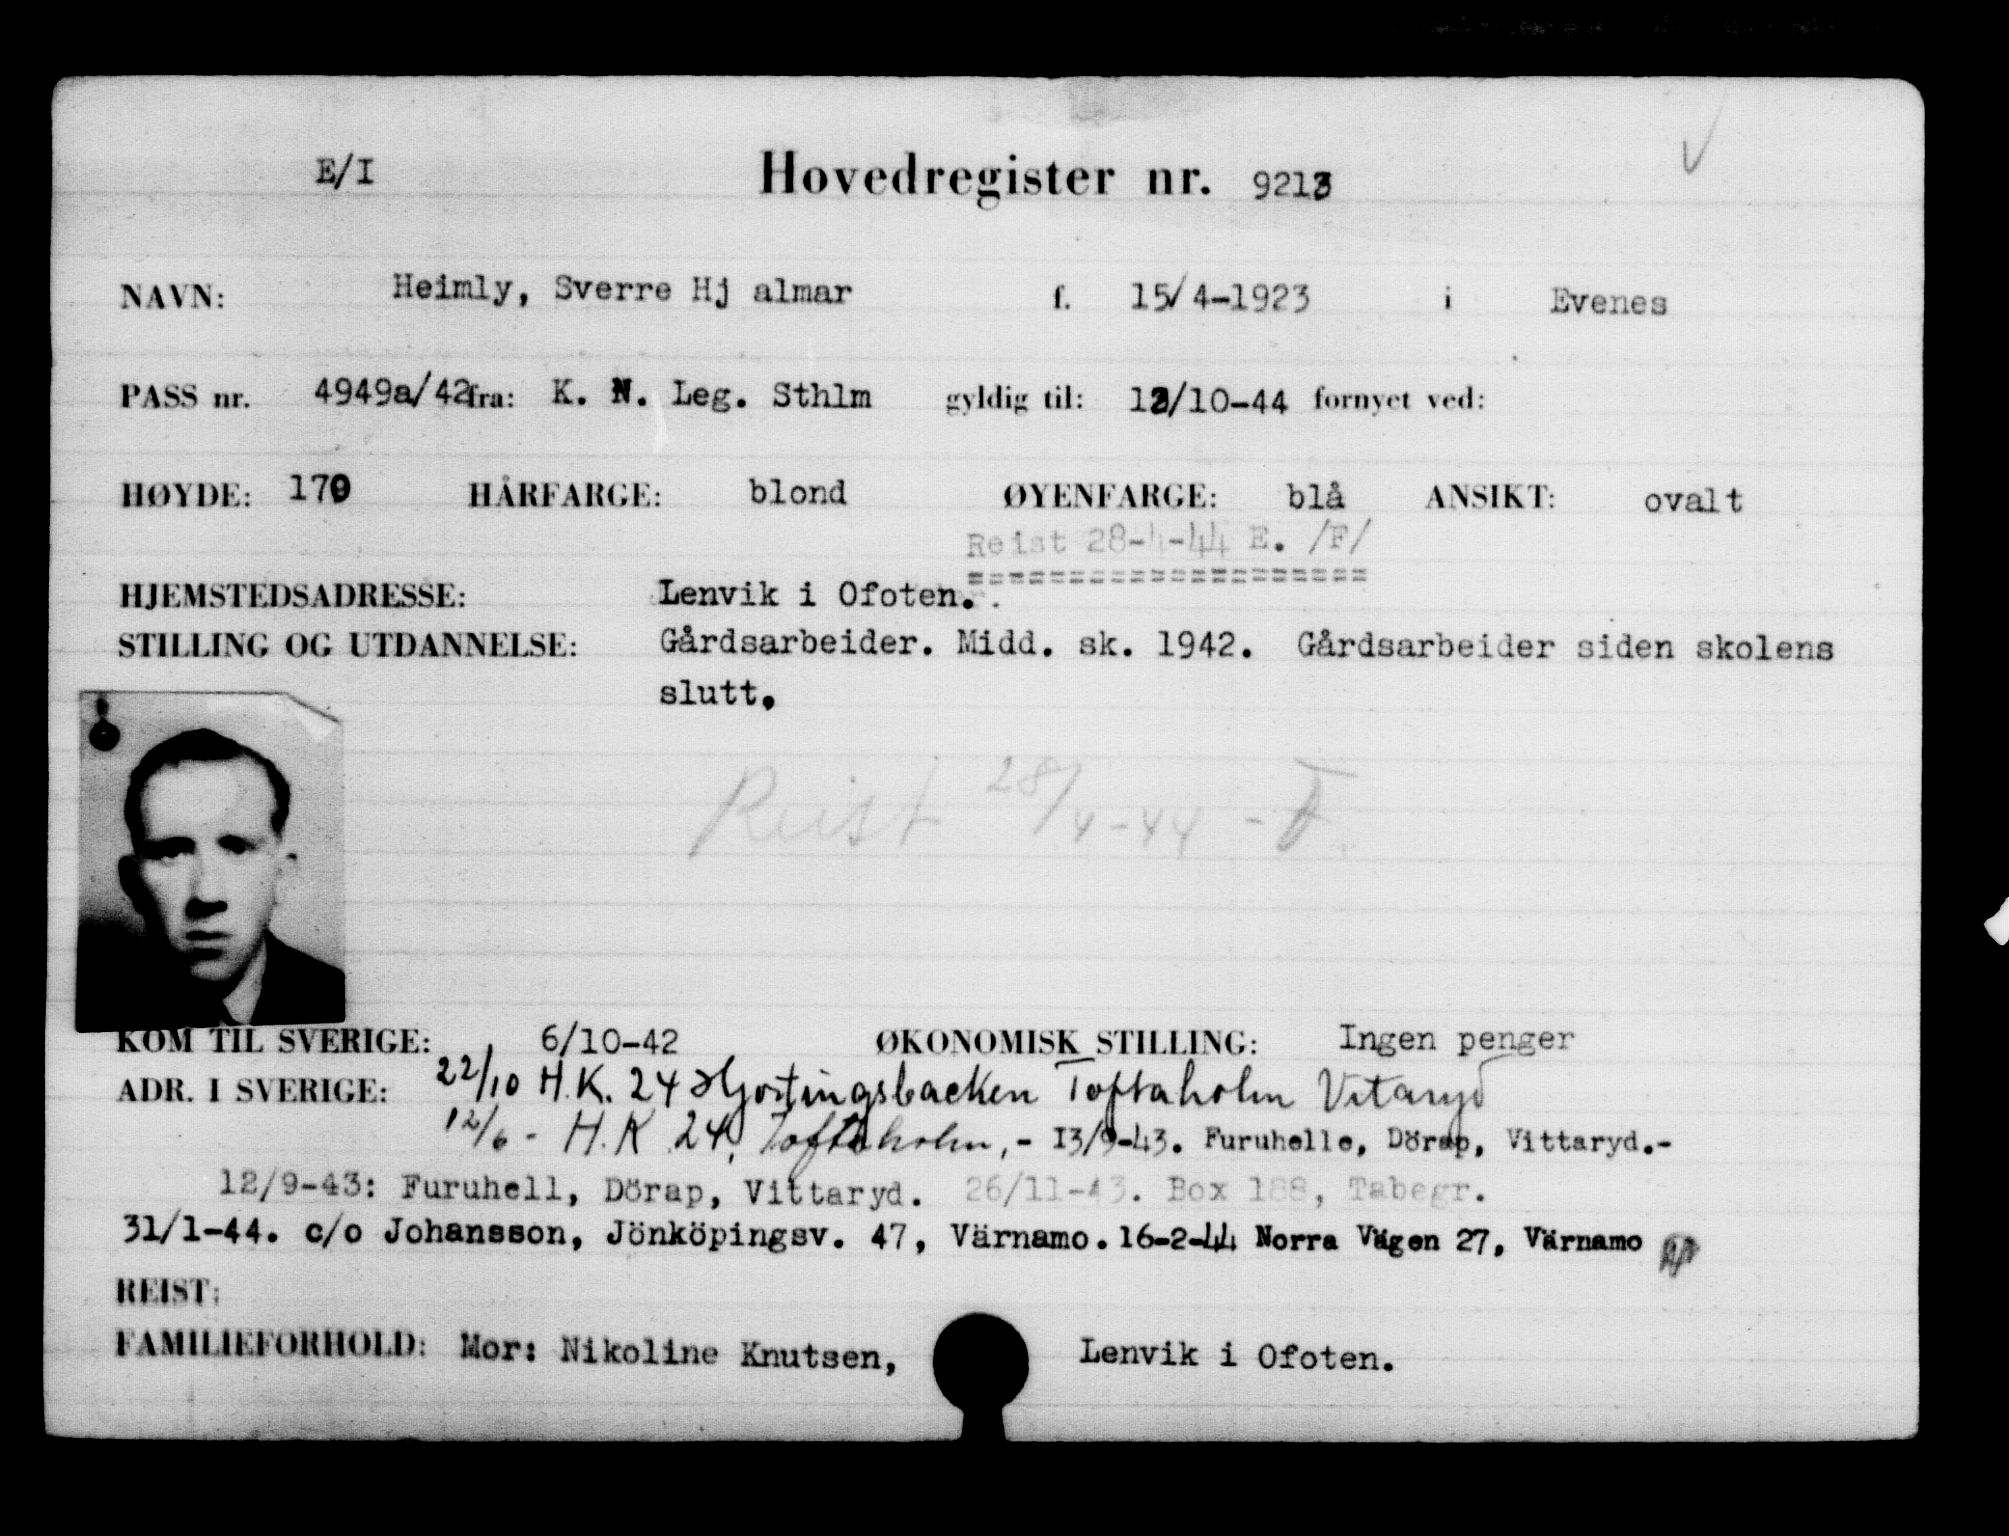 E/I Hovedregister nr. 9213
NAVN: Heimly, Sverre Hj almar f. 15/4-1923 i Evenes
PASS nr. 4949a/42 fra: K. N. Leg. Sthlm gyldig til: 12/10-44 fornyet ved:
HØYDE: 170 HÅRFARGE: blond ØYENFARGE: blå ANSIKT: ovalt
Reist 28-4-44 E. /F/
====================
HJEMSTEDSADRESSE: Lenvik i Ofoten.
STILLING OG UTDANNELSE: Gårdsarbeider. Midd. sk. 1942. Gårdsarbeider siden skolens
slutt.
Reist 28/4-44 - F.
KOM TIL SVERIGE: 6/10-42 ØKONOMISK STILLING: Ingen penger
ADR. I SVERIGE: 22/10 H.K. 24 Hjortingsbacken Toftaholm Vitaryd
12/6 - H.K 24, Toftaholm, - 13/9-43. Furuhelle, Dörap, Vittaryd.-
12/9-43: Furuhell, Dörap, Vittaryd. 26/11-43. Box 188, Tabegr.
31/1-44. c/o Johansson, Jönköpingsv. 47, Värnamo. 16-2-44 Norra Vägen 27, Värnamo
REIST:
FAMILIEFORHOLD: Mor: Nikoline Knutsen, Lenvik i Ofoten.